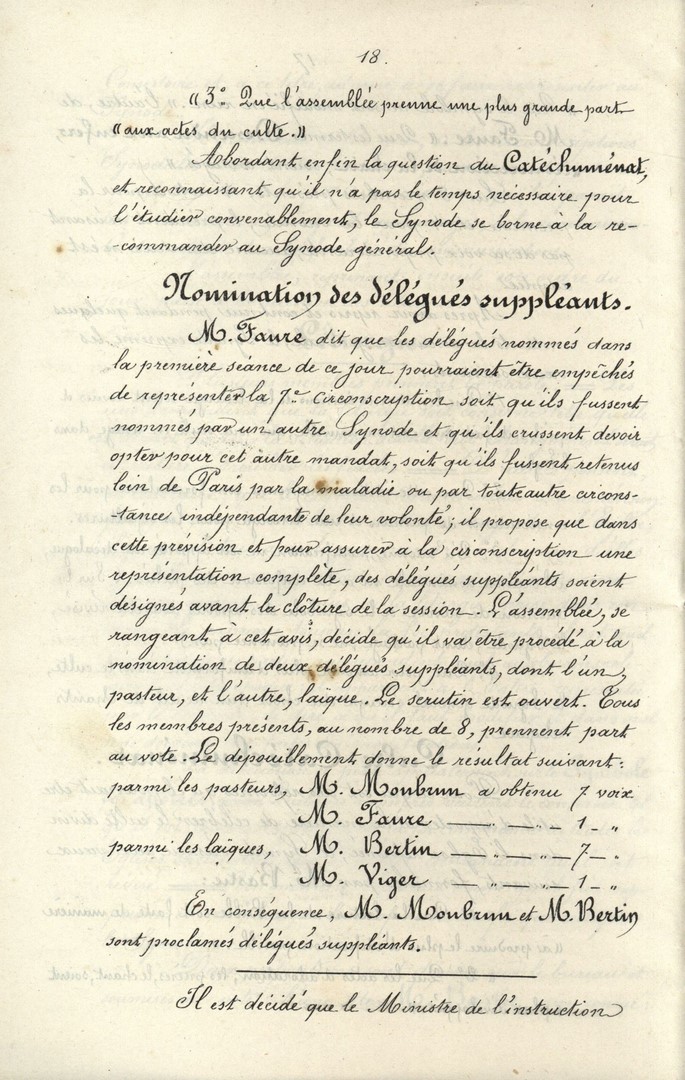 18.
"3° Que l'assemblée prenne une plus grande part
"aux actes du culte."
Abordant enfin la question du Catéchuménat,
et reconnaissant qu'il n'a pas le temps nécessaire pour
l'étudier convenablement, le Synode se borne à la re-
-commander au Synode général.
Nomination des délégués suppléants.
M. Faure dit que les délégués nommés dans
la première séance de ce jour pourraient être empêchés
de représenter la 7e circonscription soit qu'ils fussent
nommés par un autre Synode et qu'ils crussent devoir
opter pour cet autre mandat, soit qu'ils fussent retenus
loin de Paris par la maladie ou par toute autre circons-
-tance indépendante de leur volonté; il propose que dans
cette prévision et pour assurer à la circonscription une
représentation complète, des délégués suppléants soient
désignés avant la clôture de la session. L'assemblée, se
rangeant à cet avis, décide qu'il va être procédé à la
nomination de deux délégués suppléants, dont l'un,
pasteur, et l'autre, laïque. Le scrutin est ouvert. Tous
les membres présents, au nombre de 8, prennent part
au vote. Le dépouillement donne le résultat suivant:
parmi les pasteurs, M. Moubrun a obtenu 7 voix
M. Faure — „ — „ — 1 — „
parmi les laïques, M. Bertin — „ — „ — 7 — „
M. Viger — „ — „ — 1 — „
En conséquence, M. Moubrun et M. Bertin
sont proclamés délégués suppléants.
Il est décidé que le Ministre de l'instruction